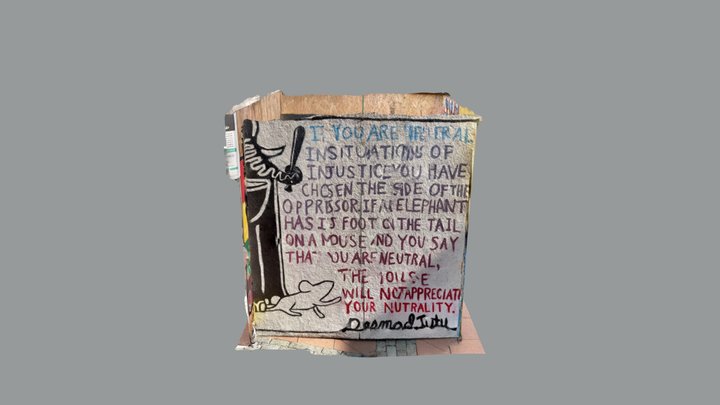 IF YOU ARE NEUTRAL
IN SITUATIONS OF
INJUSTICE YOU HAVE
CHOSEN THE SIDE OF THE
OPPRESSOR. IF AN ELEPHANT
HAS ITS FOOT ON THE TAIL
ON A MOUSE AND YOU SAY
THAT YOU ARE NEUTRAL,
THE MOUSE
WILL NOT APPRECIATE
YOUR NUTRALITY.
Desmond Tutu